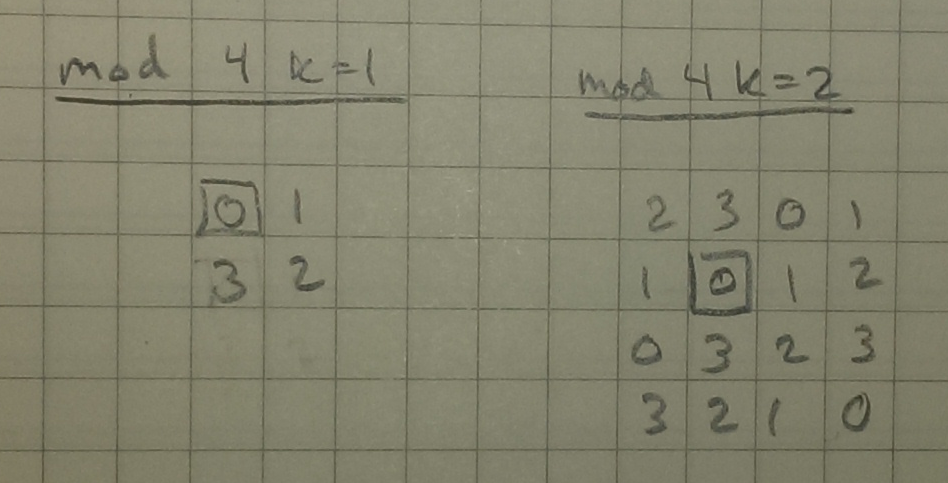 mod 4 k=1
0 1
3 2
mod 4 k=2
2 3 0 1
1 0 1 2
0 3 2 3
3 2 1 0